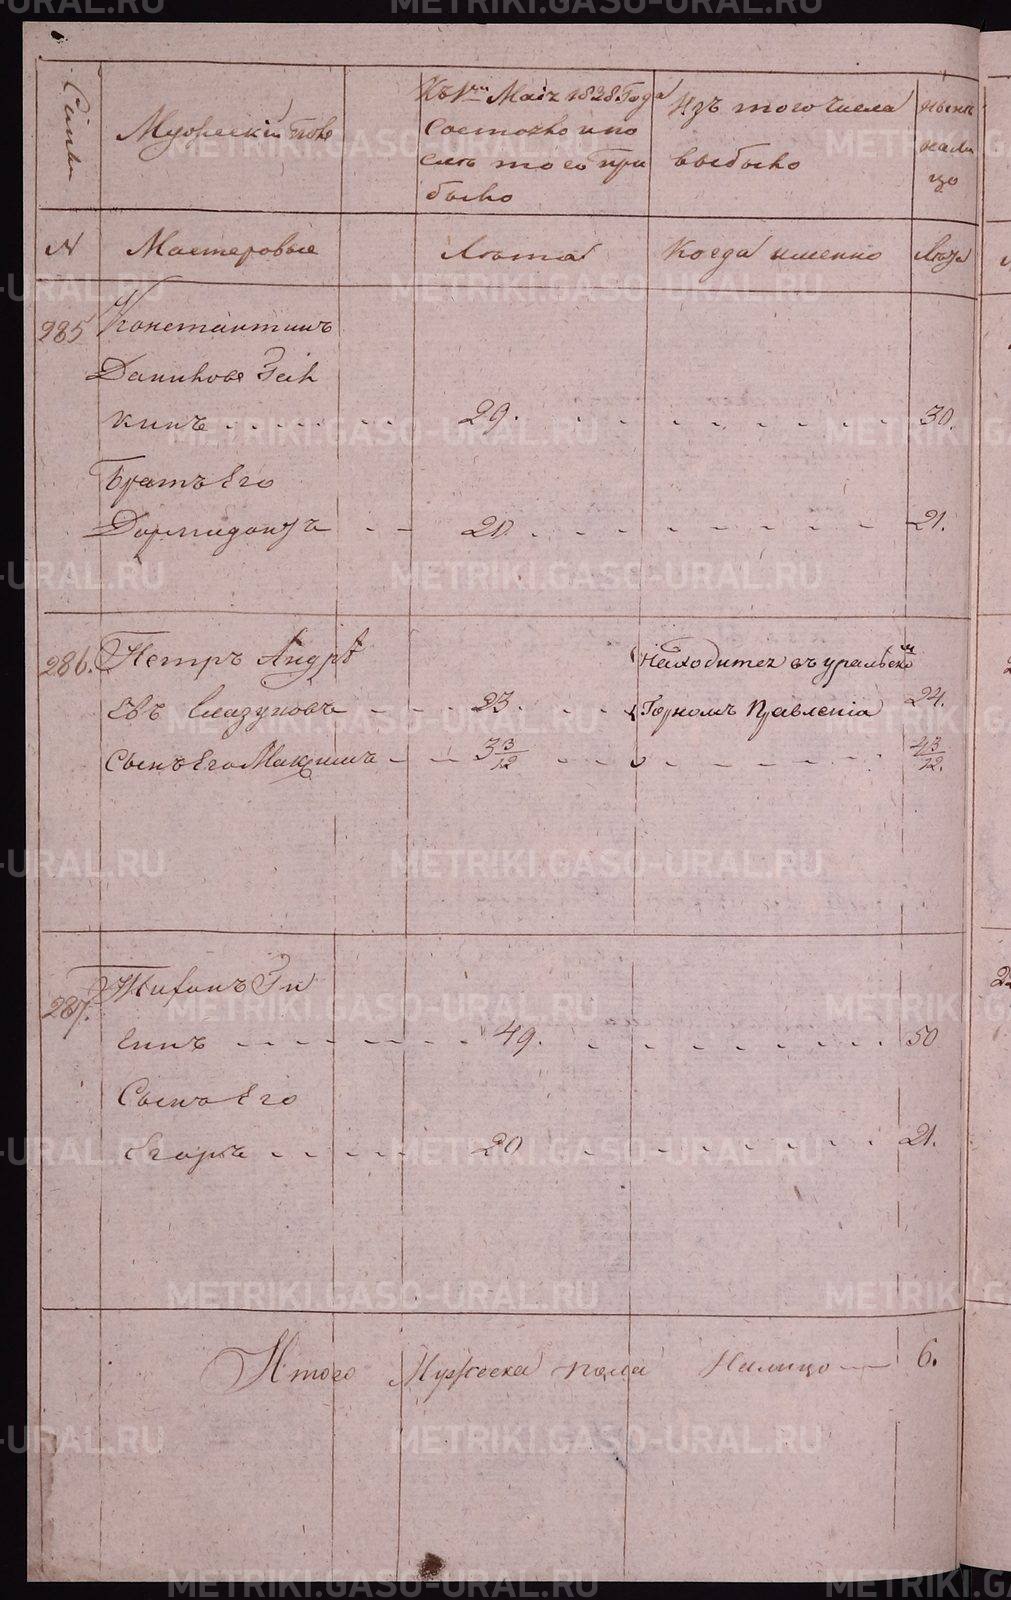 Семьи
Мужескiй полъ
Къ 1му Маiя 1828 Года
Состояло и по
слѣ того при
было
Изъ того числа
выбыло
нынѣ
нали
цо
N
Мастеровые
Лѣта
Когда именно
Лѣта
285
Константинъ
Даниловъ Зай
кинъ 29. 30.
Братъ Его
Дормидонтъ 20 21.
286. Петръ Андрѣ
евъ Глазуновъ 23. 24.
Находится въ уральскомъ
Горномъ Правленiи
Сынъ Его Максимъ 3 3/12 4 3/12.
287. Тихонъ
49. 50
Сынъ Его
Егоръ 20 21.
Итого Мужеска пола Налицо 6.
METRIKI.GASO-URAL.RU